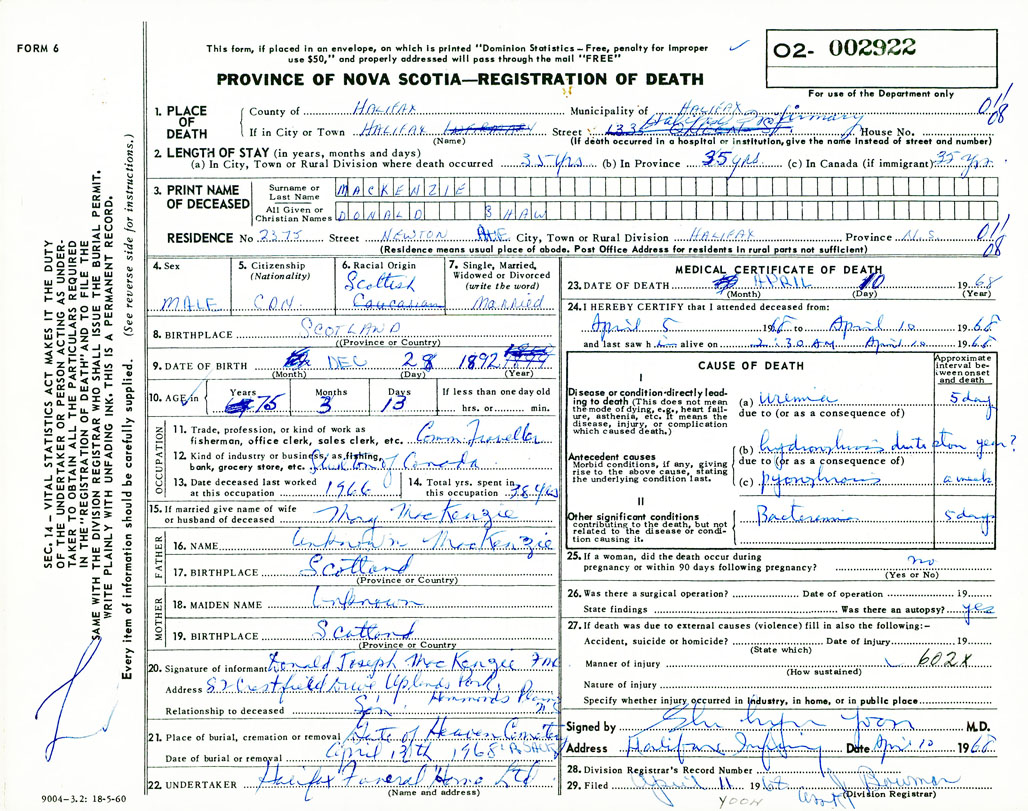 FORM 6
This form, if placed in an envelope, on which is printed "Dominion Statistics – Free, penalty for improper
use $50," and properly addressed will pass through the mail "FREE"
PROVINCE OF NOVA SCOTIA—REGISTRATION OF DEATH
02- 002922
For use of the Department only
SEC. 14 – VITAL STATISTICS ACT MAKES IT THE DUTY
OF THE UNDERTAKER OR PERSON ACTING AS UNDER-
TAKER TO OBTAIN ALL THE PARTICULARS REQUIRED
IN THE "REGISTRATION OF DEATH" AND TO FILE THE
SAME WITH THE DIVISION REGISTRAR WHO SHALL ISSUE THE BURIAL PERMIT.
WRITE PLAINLY WITH UNFADING INK. THIS IS A PERMANENT RECORD.
Every item of information should be carefully supplied. (See reverse side for instructions.)
1. PLACE OF DEATH
County of HALIFAX Municipality of HALIFAX 01/08
If in City or Town HALIFAX Street Halifax Infirmary House No.
(Name) (If death occurred in a hospital or institution, give the name instead of street and number)
2. LENGTH OF STAY (in years, months and days)
(a) In City, Town or Rural Division where death occurred 35 yrs (b) In Province 35 yrs (c) In Canada (if immigrant) 35 yrs.
3. PRINT NAME OF DECEASED
Surname or Last Name MACKENZIE
All Given or Christian Names DONALD SHAW
RESIDENCE No 2375 Street NEWTON AVE City, Town or Rural Division HALIFAX Province N.S. 01/08
(Residence means usual place of abode. Post Office Address for residents in rural parts not sufficient)
4. Sex MALE
5. Citizenship (Nationality) CDN.
6. Racial Origin Scottish Caucasian
7. Single, Married, Widowed or Divorced (write the word) Married
8. BIRTHPLACE SCOTLAND
(Province or Country)
9. DATE OF BIRTH DEC 28 1892
(Month) (Day) (Year)
10. AGE in Years 75 Months 3 Days 13 If less than one day old
hrs. or min.
OCCUPATION
11. Trade, profession, or kind of work as
fisherman, office clerk, sales clerk, etc. Comm. Traveller
12. Kind of industry or business, as fishing,
bank, grocery store, etc. of Canada
13. Date deceased last worked
at this occupation 1966
14. Total yrs. spent in
this occupation 38 yrs
15. If married give name of wife
or husband of deceased Mary MacKenzie
FATHER
16. NAME Unknown MacKenzie
17. BIRTHPLACE Scotland
(Province or Country)
MOTHER
18. MAIDEN NAME Unknown
19. BIRTHPLACE Scotland
(Province or Country
20. Signature of informant Ronald Joseph MacKenzie
Address 82 Crestfield Drive Uplands Park,
Hammonds Plains
Relationship to deceased Son
21. Place of burial, cremation or removal Gate of Heaven
Date of burial or removal April 13th 1968
22. UNDERTAKER Halifax Funeral Home Ltd
(Name and address)
9004-3.2: 18-5-60
MEDICAL CERTIFICATE OF DEATH
23. DATE OF DEATH APRIL 10 1968
(Month) (Day) (Year)
24. I HEREBY CERTIFY that I attended deceased from:
April 5 1968 to April 10 1968
and last saw him alive on 2:30 AM April 10 1968
CAUSE OF DEATH
Approximate
interval be-
tween onset
and death
I
Disease or condition directly lead-
ing to death (This does not mean
the mode of dying, e.g., heart fail-
ure, asthenia, etc. It means the
disease, injury, or complication
which caused death.)
(a) uremia 5 days
due to (or as a consequence of)
(b) hydronephrosis due to stone year?
due to (or as a consequence of)
(c) pyonephrosis a week
Antecedent causes
Morbid conditions, if any, giving
rise to the above cause, stating
the underlying condition last.
II
Other significant conditions
contributing to the death, but not
related to the disease or condi-
tion causing it.
Bacteremia 5 days
25. If a woman, did the death occur during
pregnancy or within 90 days following pregnancy? no
(Yes or No)
26. Was there a surgical operation? Date of operation 19
State findings Was there an autopsy? yes
27. If death was due to external causes (violence) fill in also the following:–
Accident, suicide or homicide? Date of injury 19
(State which)
Manner of injury 602X
(How sustained)
Nature of injury
Specify whether injury occurred in industry, in home, or in public place
Signed by Yoon M.D.
Address Halifax Infirmary Date Apr 10 1968
28. Division Registrar's Record Number
29. Filed April 11 1968 Bowman
(Division Registrar)
YOON